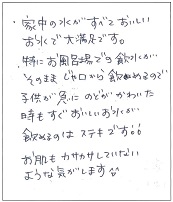 ・家中の水がすべておいしい
お水で大満足です。
特にお風呂場での飲水が…
そのままじゃ口から飲めるので
子供が急にのどがかわいた
時もすぐおいしいお水が
飲めるのはステキです!!
お肌もカサカサしていない
ような気がします